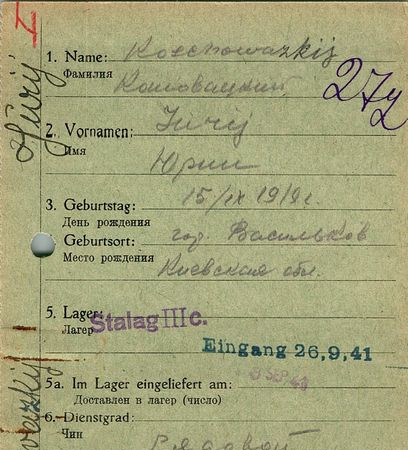 I
Jurij
1. Name: Koschowazkij
Фамилия Кошовацкий
272
2. Vornamen: Jurij
Имя Юрий
3. Geburtstag: 15/IX 1919г.
День рождения
Geburtsort: гор. Васильков
Место рождения Киевская обл.
5. Lager: Stalag III c.
Лагерь
Eingang 26,9,41
5a. Im Lager eingeliefert am:
Доставлен в лагерь (число)
6. Dienstgrad:
Чин Рядовой